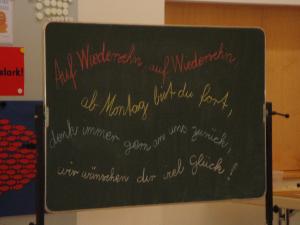 stark!
Auf Wiedersehn, auf Wiedersehn,
ab Montag bist du fort,
denk immer gern an uns zurück,
wir wünschen dir viel Glück!